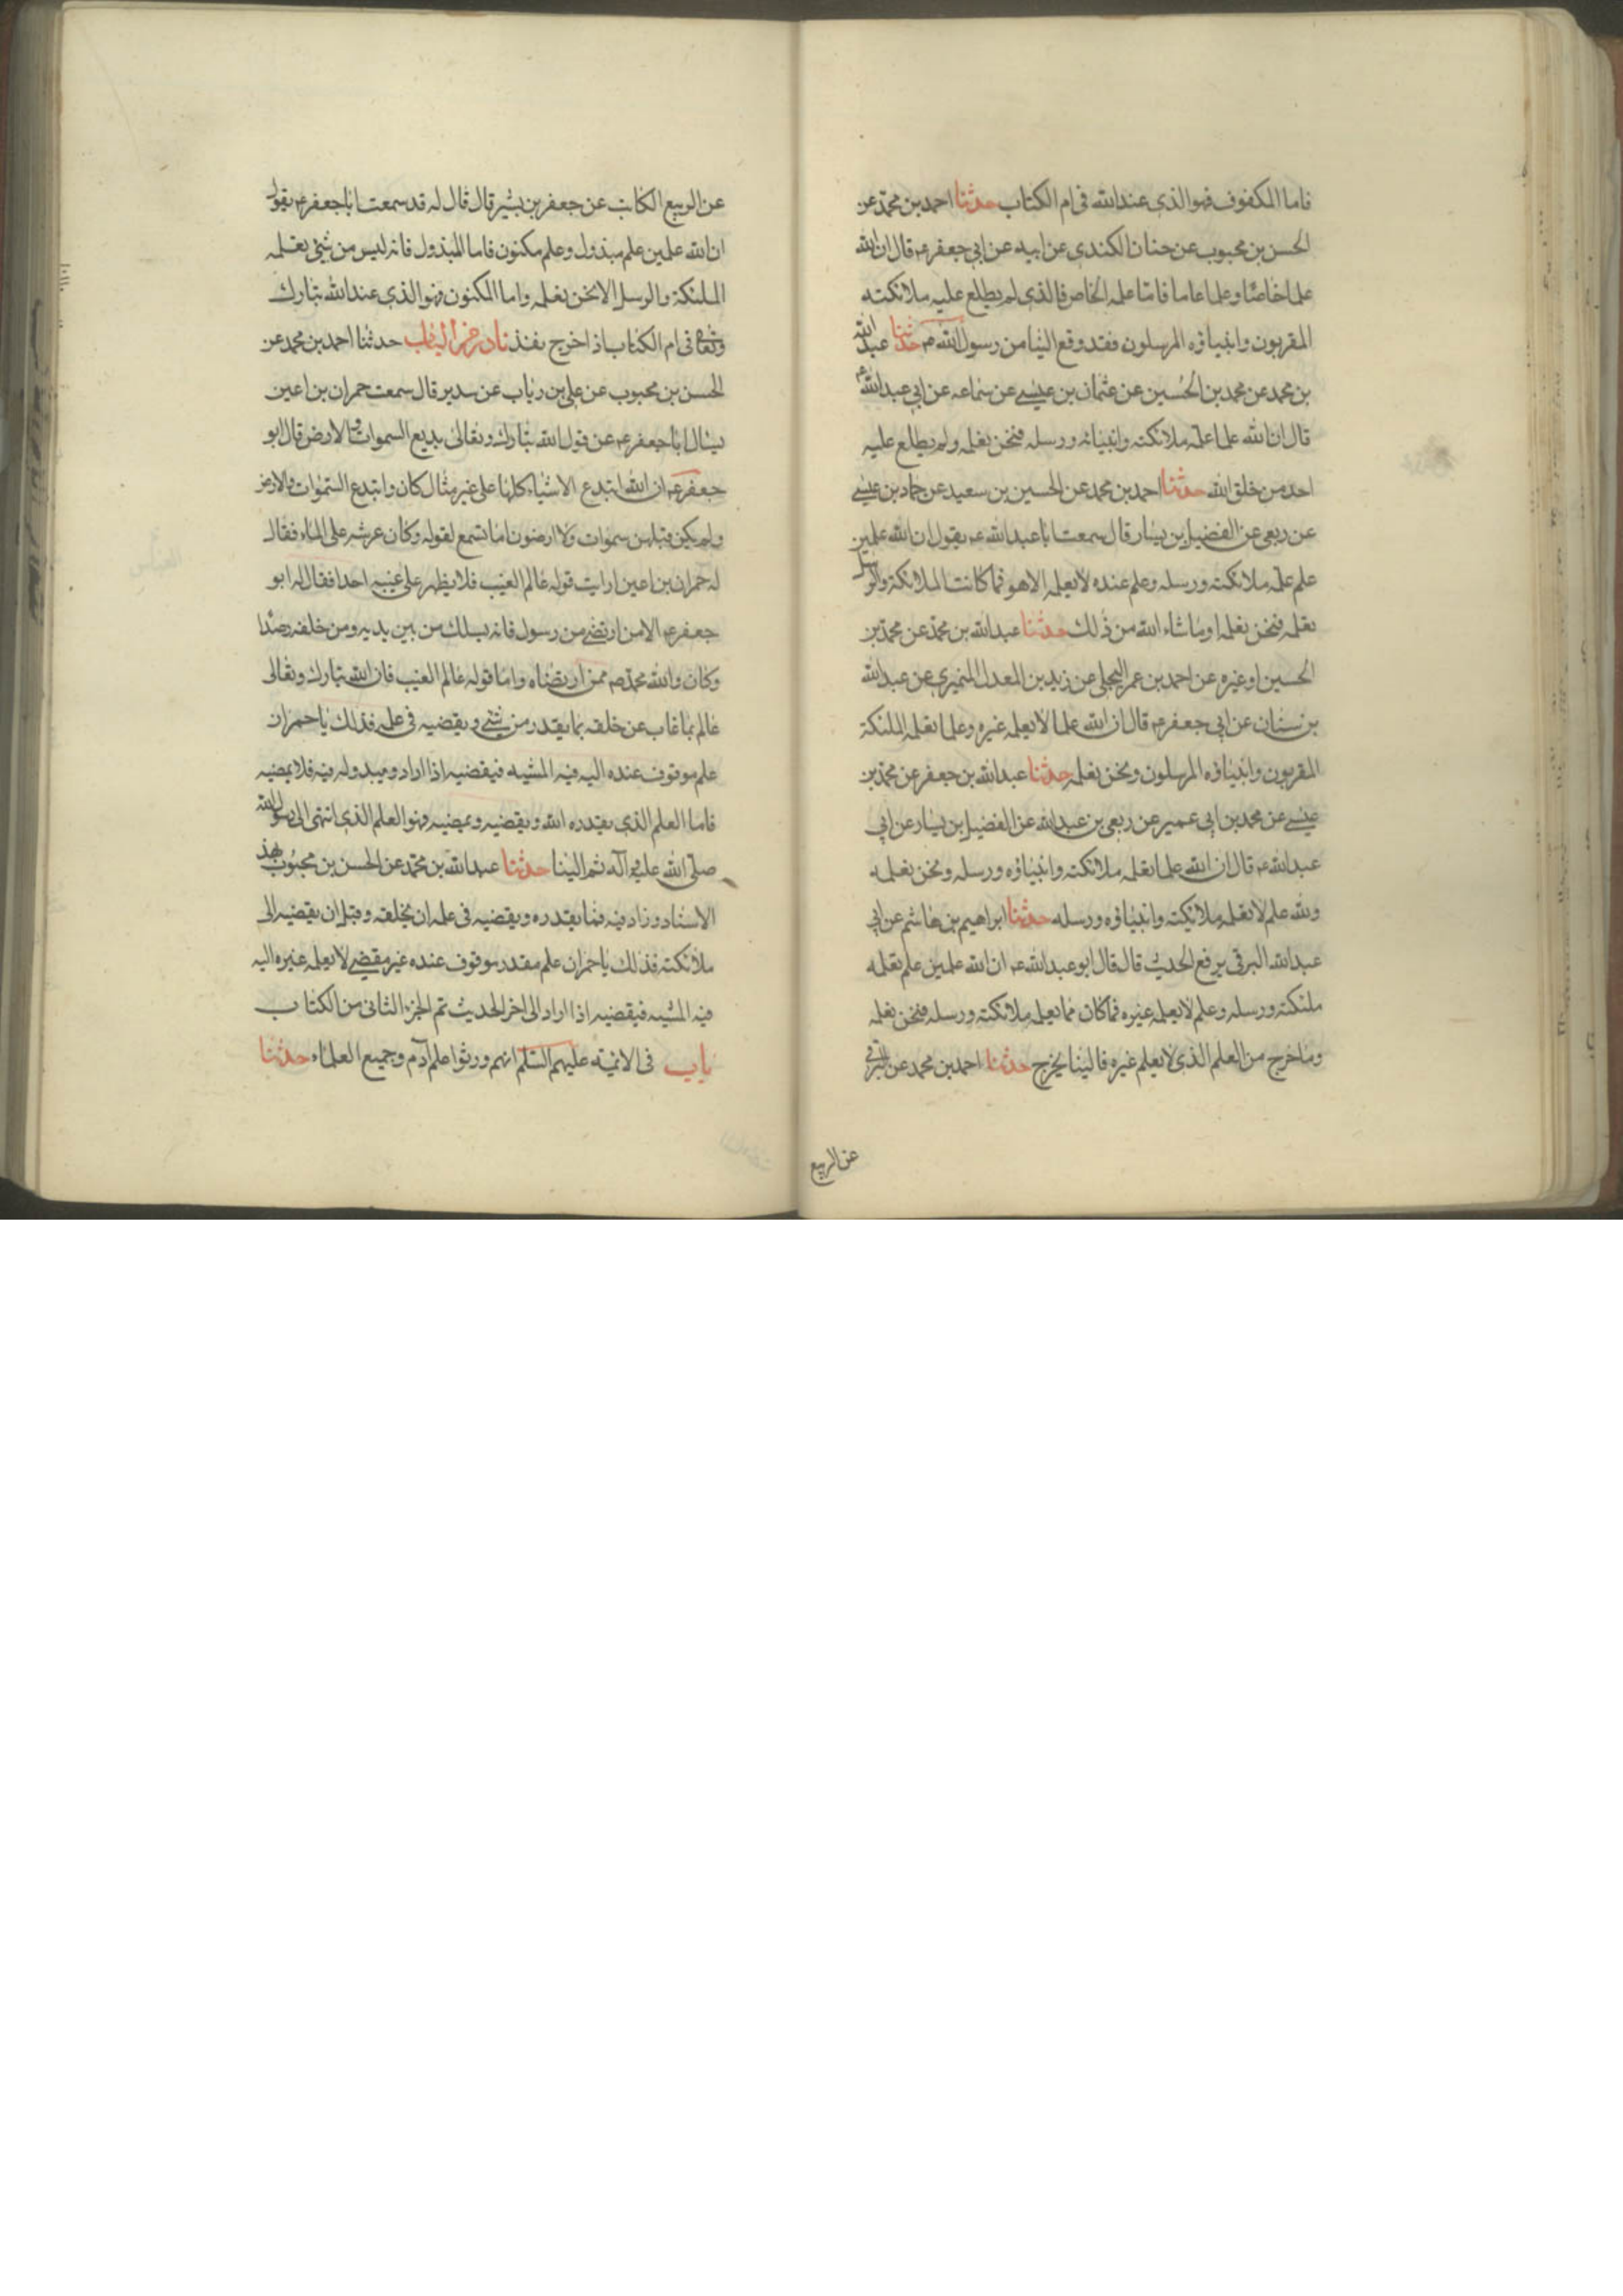 فاما المكفوف فهو الذى عند الله فى ام الكتاب حدثنا احمد بن محمد عن
الحسن بن محبوب عن حنان الكندى عن ابيه عن ابى جعفر ع قال ان لله
علما خاصا وعلما عاما فامّا علمه الخاص فالذى لم يطلع عليه ملائكته
المقربون وانبياؤه المرسلون فقد وقع الينا من رسول الله ص حدثنا عبد الله
بن محمد عن محمد بن الحسين عن عثمان بن عيسى عن سماعه عن ابى عبد الله ع
قال ان لله علما علمه ملائكته وانبيائه ورسله فنحن نعلمه ولم يطلع عليه
احد من خلق الله حدثنا احمد بن محمد عن الحسين بن سعيد عن حماد بن عيسى
عن ربعى عن الفضيل بن يسار قال سمعت ابا عبد الله ع يقول ان لله علمين
علم علمه ملائكته ورسله وعلم عنده لا يعلمه الا هو فما كانت الملائكة والرسل
تعلمه فنحن نعلمه او ما شاء الله من ذلك حدثنا عبد الله بن محمد عن محمد بن
الحسين او غيره عن احمد بن عمر البجلى عن زيد بن المعدل النميرى عن عبد الله
بن سنان عن ابى جعفر ع قال ان لله علما لا يعلمه غيره وعلما تعلمه الملئكة
المقربون وانبياؤه المرسلون ونحن نعلمه حدثنا عبد الله بن جعفر عن محمد بن
عيسى عن محمد بن ابى عمير عن ربعى بن عبد الله عن الفضيل بن يسار عن ابى
عبد الله ع قال ان لله علما تعلمه ملائكته وانبياؤه ورسله ونحن نعلمه
ولله علم لا تعلمه ملائكته وانبياؤه ورسله حدثنا ابراهيم بن هاشم عن ابى
عبد الله البرقى يرفع الحديث قال قال ابو عبد الله ع ان لله علمين علم تعلمه
ملئكته ورسله وعلم لا يعلمه غيره فما كان مما يعلمه ملائكته ورسله فنحن نعلمه
وما خرج من العلم الذى لا يعلم غيره فالينا يخرج حدثنا احمد بن محمد عن البرقى
عن الربيع
عن الربيع الكاتب عن جعفر بن بشير قال قال له قد سمعت ابا جعفر ع يقول
ان لله علمين علم مبذول وعلم مكنون فاما المبذول فانه ليس من شئ تعلمه
الملئكة والرسل الا نحن نعلمه واما المكنون فهو الذى عند الله تبارك
وتعالى فى ام الكتاب اذا خرج نفذ نادر من الباب حدثنا احمد بن محمد عن
الحسن بن محبوب عن على بن رياب عن سدير قال سمعت حمران بن اعين
يسال ابا جعفر ع عن قول الله تبارك وتعالى بديع السموات والارض قال ابو
جعفر ع ان الله ابتدع الاشياء كلها على غير مثال كان وابتدع السموات والارض
ولم يكن قبلهن سموات ولا ارضون اما تسمع لقوله وكان عرشه على الماء فقال
له حمران بن اعين ارايت قوله عالم الغيب فلا يظهر على غيبه احدا فقال له ابو
جعفر ع الا من ارتضى من رسول فانه يسلك من بين يديه ومن خلفه رصدا
وكان والله محمد ص ممن ارتضاه واما قوله عالم الغيب فان الله تبارك وتعالى
عالم بما غاب عن خلقه بما يقدر من شئ ويقضيه فى علمه فذلك يا حمران
علم موقوف عنده اليه فيه المشيه فيقضيه اذا اراد ويبدو له فيه فلا يمضيه
فاما العلم الذى يقدره الله ويقضيه ويمضيه فهو العلم الذى انتهى الى رسول الله
صلى الله عليه وآله ثم الينا حدثنا عبد الله بن محمد عن الحسن بن محبوب بهذا
الاسناد وزاد فيه فما يقدره ويقضيه فى علمه ان يخلقه وقبل ان يقضيه الى
ملائكته فذلك يا حمران علم مقدر موقوف عنده غير مقضى لا يعلمه غيره اليه
فيه المشيه فيقضيه اذا اراد الى اخر الحديث تم الجزء الثانى من الكتاب
باب فى الائمه عليهم السلم انهم ورثوا علم آدم وجميع العلماء حدثنا